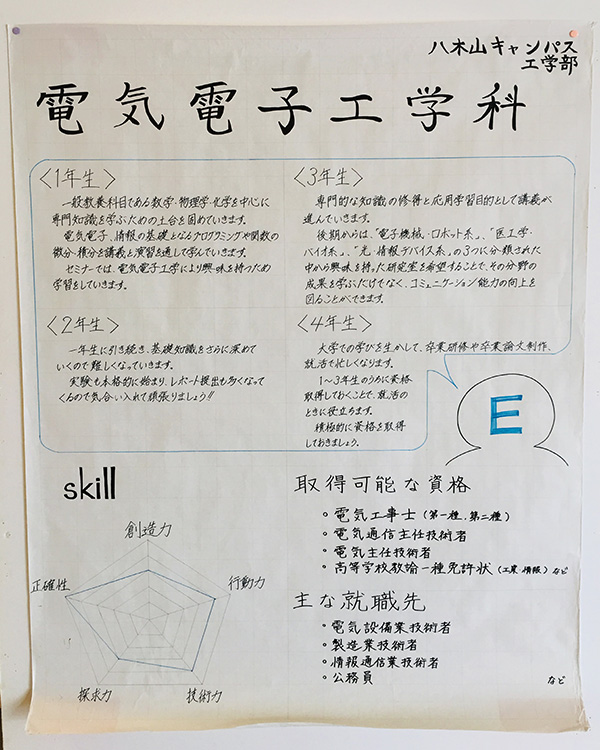 八木山キャンパス
工学部
電気電子工学科
〈1年生〉
一般教養科目である数学・物理学・化学を中心に
専門知識を学ぶための土台を固めていきます。
電気電子、情報の基礎となるプログラミングや関数の
微分・積分を講義と演習を通して学んでいきます。
セミナーでは、電気電子工学により興味を持つため
学習をしていきます。
〈2年生〉
一年生に引き続き、基礎知識をさらに深めて
いくので難しくなっていきます。
実験も本格的に始まり、レポート提出も多くなって
くるので気合い入れて頑張りましょう!!
〈3年生〉
専門的な知識の修得と応用学習目的として講義が
進んでいきます。
後期からは、「電子機械・ロボット系」、「医工学・
バイオ系」、「光・情報デバイス系」の3つに分類された
中から興味を持った研究室を希望することで、その分野の
成果を学ぶだけでなく、コミュニケーション能力の向上を
図ることができます。
〈4年生〉
大学での学びを生かして、卒業研修や卒業論文制作、
就活で忙しくなります。
1〜3年生のうちに資格
取得しておくことで、就活の
ときに役立ちます。
積極的に資格を取得
しておきましょう。
E
skill
創造力
正確性
行動力
探求力
技術力
取得可能な資格
・電気工事士(第一種.第二種)
・電気通信主任技術者
・電気主任技術者
・高等学校教諭一種免許状(工業.情報)など
主な就職先
・電気設備業技術者
・製造業技術者
・情報通信業技術者
・公務員
など